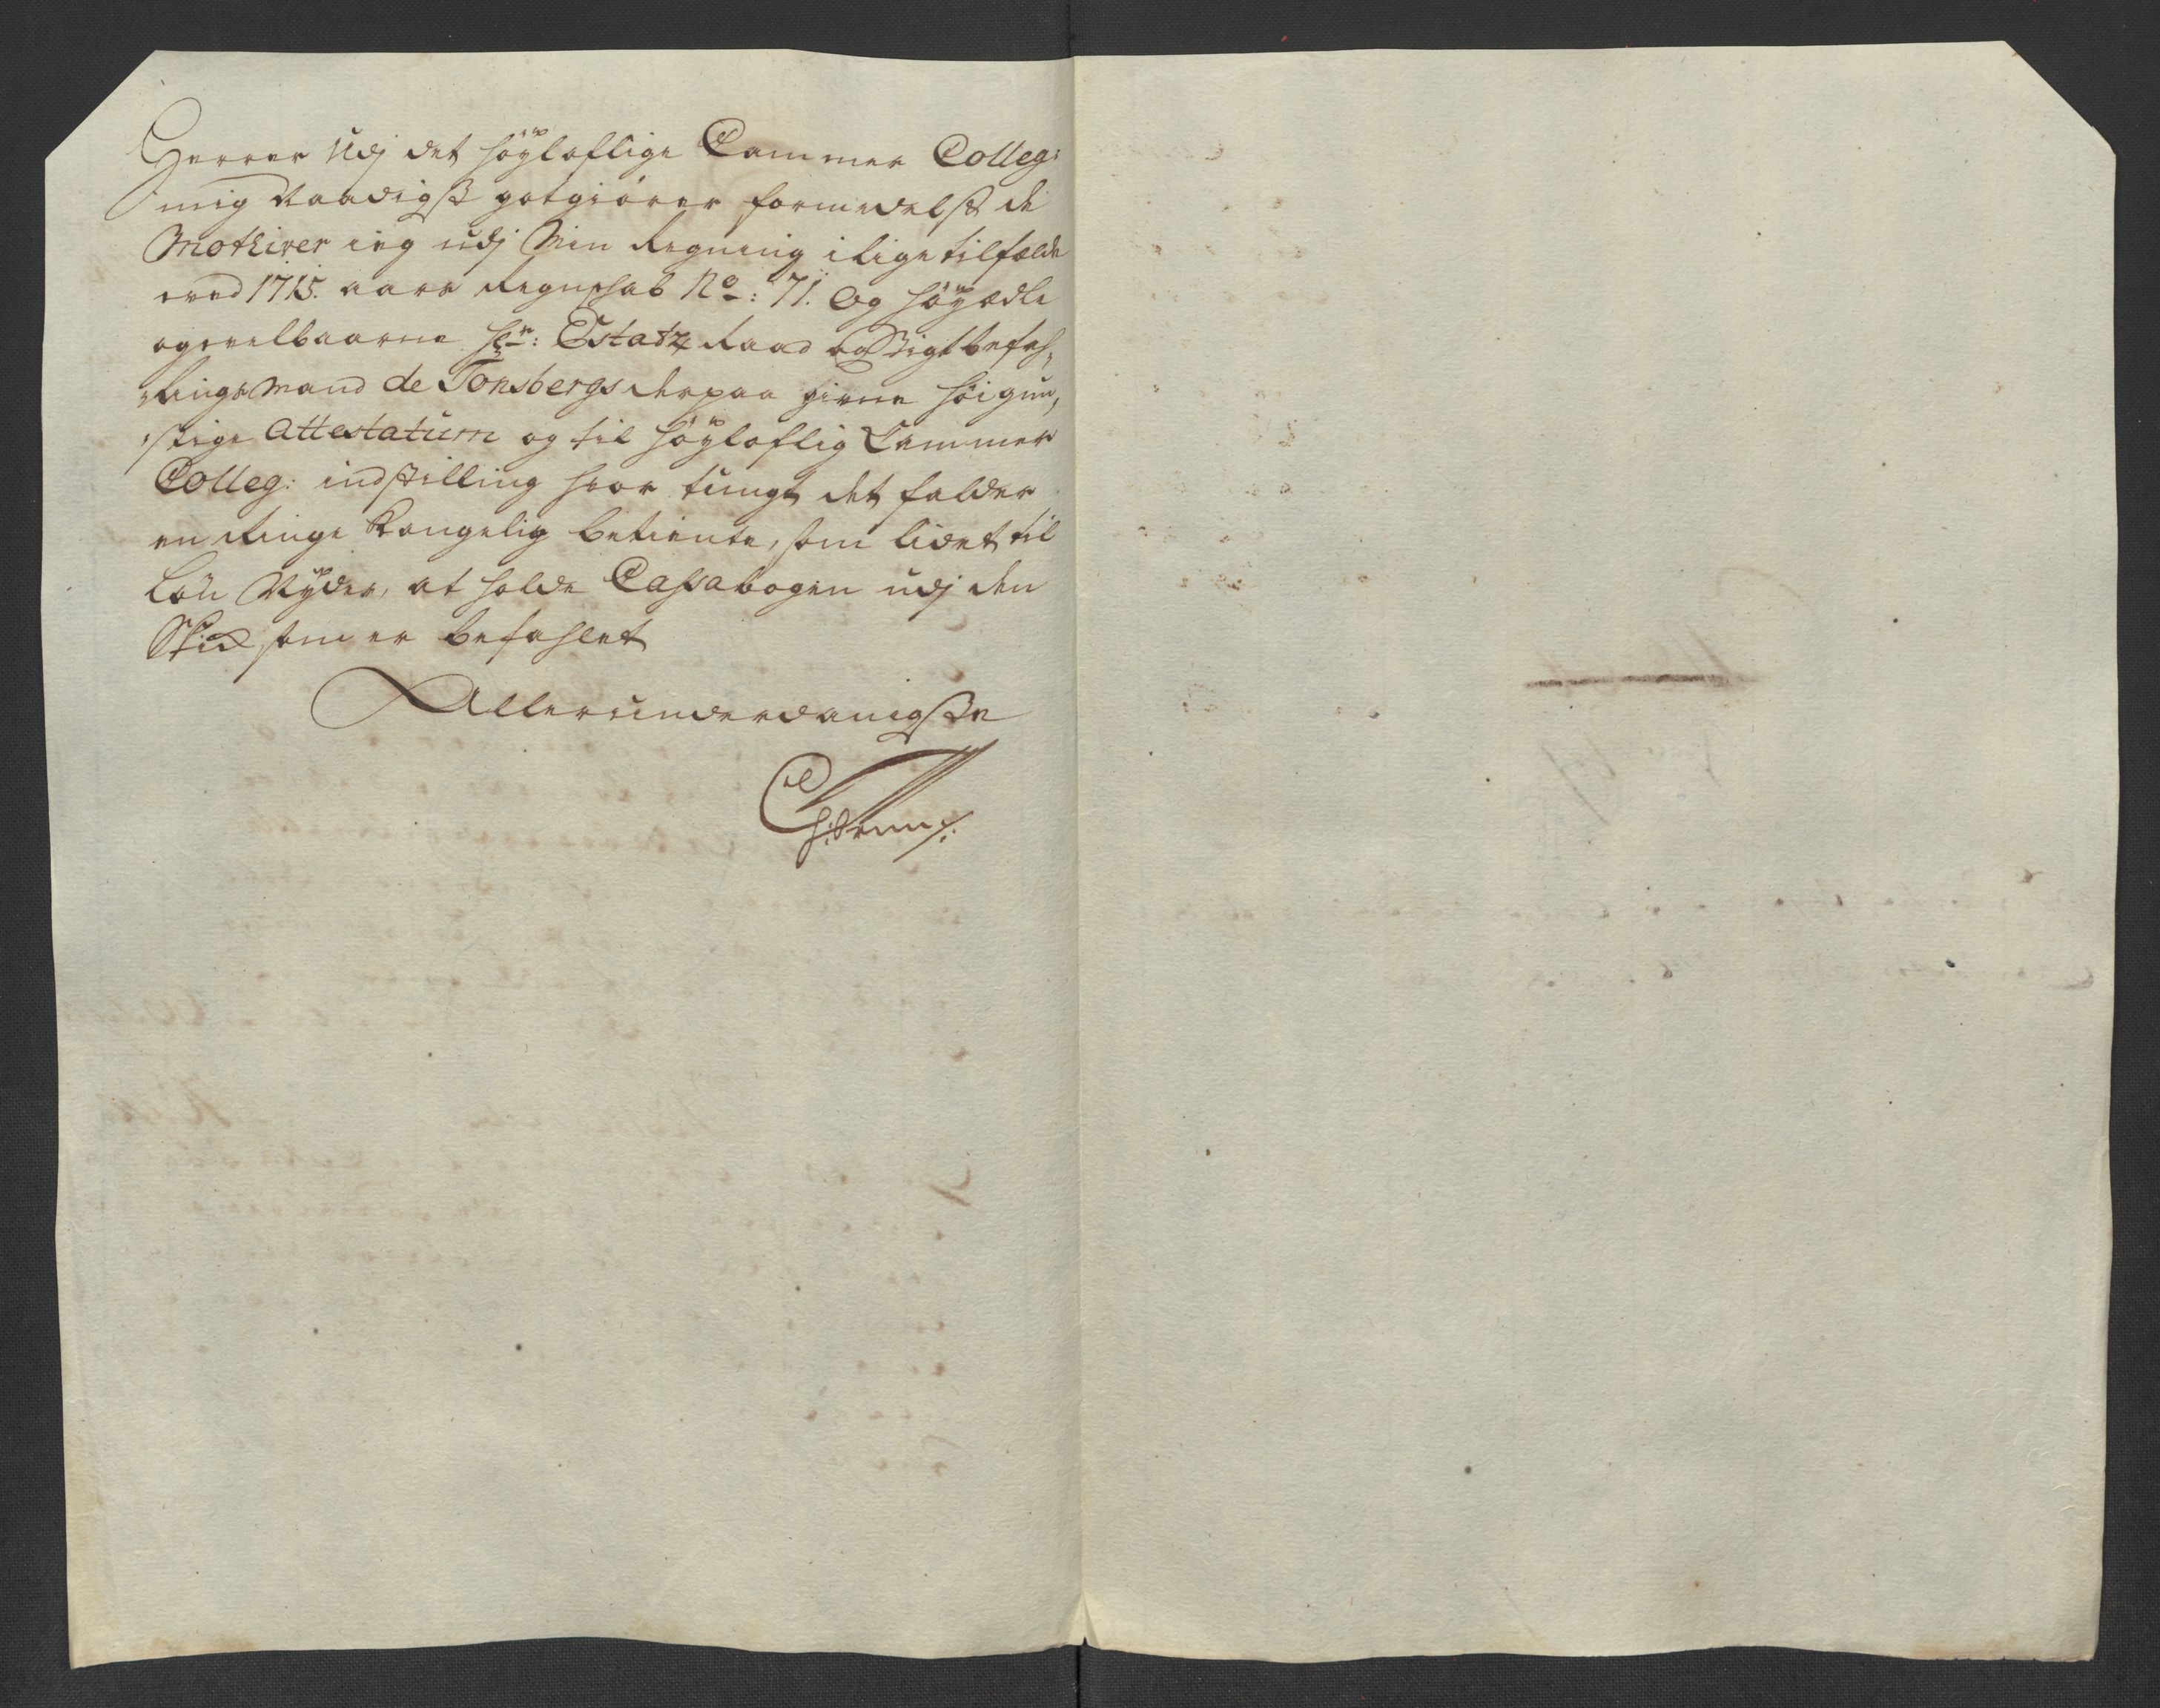 Herrer Udj det höyloflige Cammer Colleg:
mig Naadigst gotgiörer formedelst de
Mothiver ieg udj Min Regning i lige tilfælde
ved 1715. aars Regnschab No: 71. Og höyædle
og velbaarne Hr: Estatz Raad og Stigtbefah-
lings Mand de Tonsbergs derpaa givne höigun-
stige Attestatum og til höyloflig Cammer
Colleg: indstilling hvor tungt det falder
en Ringe Kongelig betiente, som lidet til
Løn Nyder, at holde Cassabogen udj den
Skick som er befahlet
Allerunderdanigste